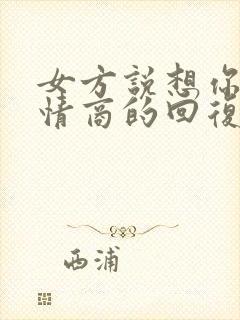 女方說想你
情商的回復
西浦